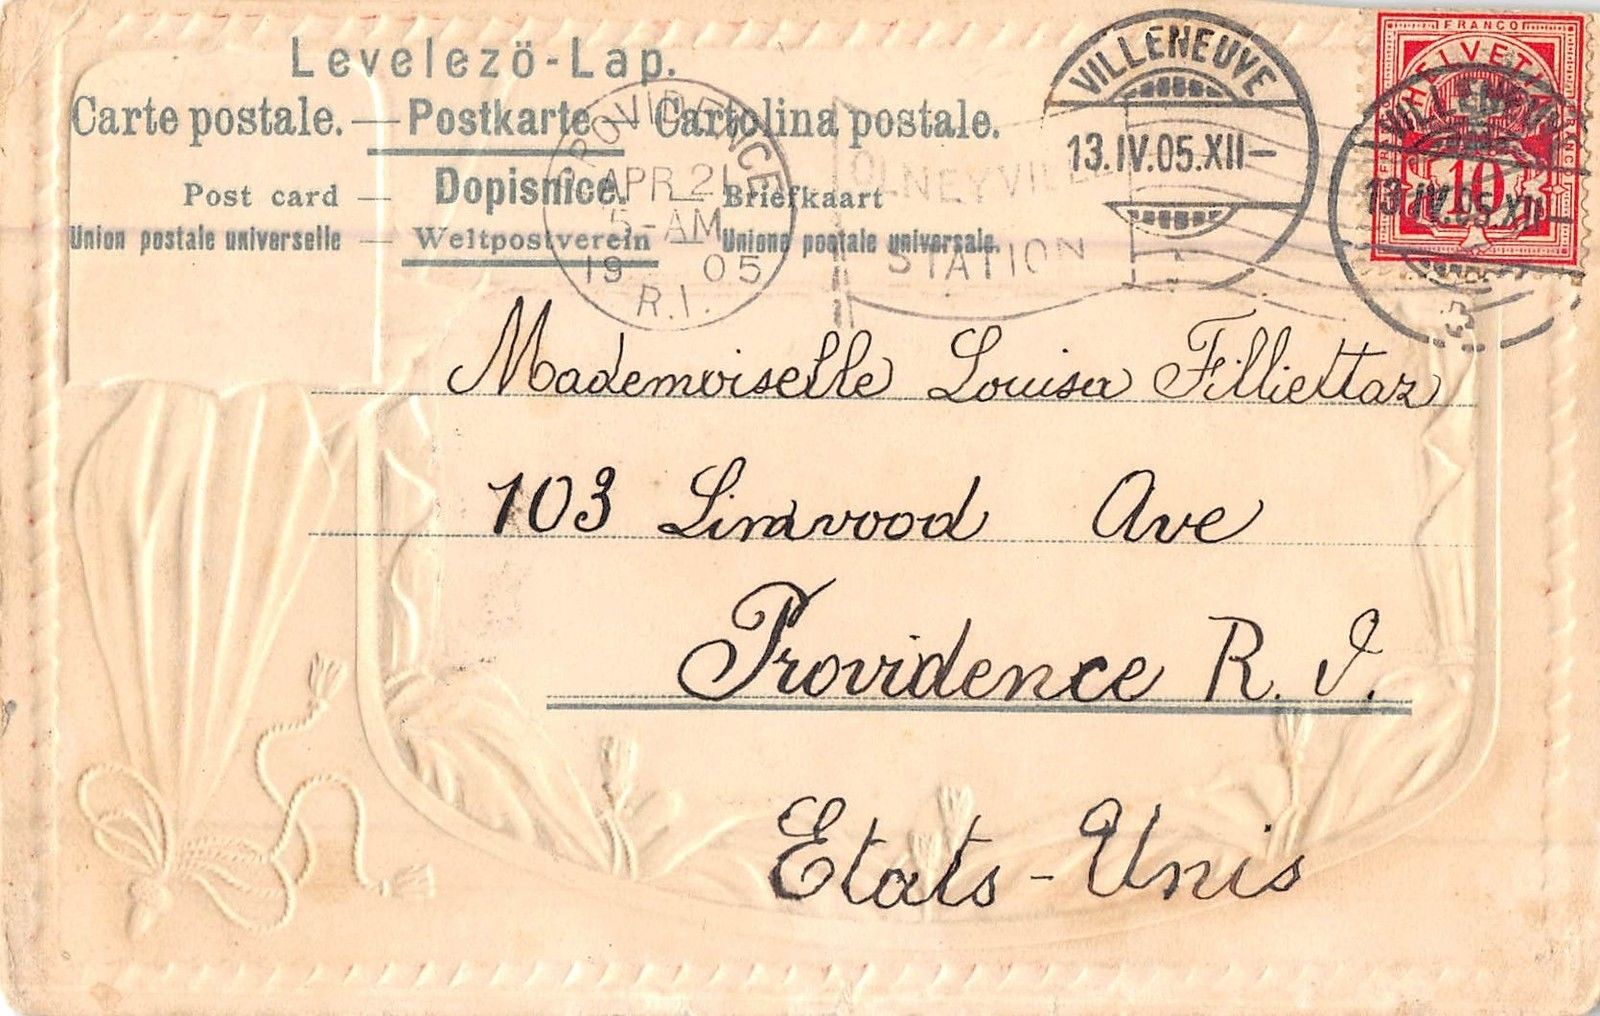 Levelezö-Lap.
Carte postale. — Postkarte Cartolina postale.
Post card — Dopisnice. — Briefkaart
Union postale universelle — Weltpostverein — Unione postale universale.
PROVIDENCE
APR 21
5-AM
19 05
R.I.
OLNEYVILLE
STATION
VILLENEUVE
13.IV.05.XII—
FRANCO
HELVETIA
10
VILLENEUVE
13.IV.05.XII—
Mademoiselle Louisa Filliettaz
103 Linwood Ave
Providence R. I.
Etats-Unis